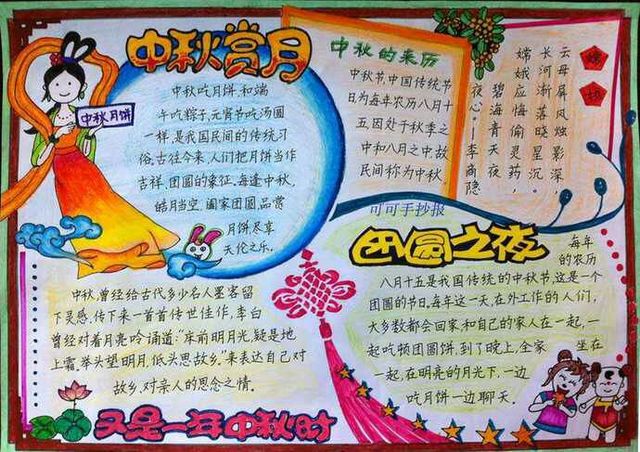 中秋赏月
中秋月饼
中秋吃月饼,和端
午吃粽子,元宵节吃汤圆
一样,是我国民间的传统习
俗。古往今来,人们把月饼当作
吉祥、团圆的象征。每逢中秋,
皓月当空,阖家团圆,品赏
月饼尽享
天伦之乐。
中秋的来历
中秋节,中国传统节
日为每年农历八月十
五,因处于秋季之
中和八月之中,故
民间称为中秋
嫦娥
云母屏风烛影深,
长河渐落晓星沉。
嫦娥应悔偷灵药,
碧海青天夜
夜心。—李商隐
可可手抄报
团圆之夜
每年
的农历
八月十五是我国传统的中秋节,这是一个
团圆的节日,每年这一天,在外工作的人们,
大多数都会回家,和自己的家人在一起,一
起吃顿团圆饼,到了晚上,全家坐在
一起,在明亮的月光下,一边
吃月饼一边聊天。
中秋,曾经给古代多少名人墨客留
下灵感,传下来一首首传世佳作,李白
曾经对着月亮吟诵道:"床前明月光,疑是地
上霜,举头望明月,低头思故乡。"来表达自己对
故乡,对亲人的思念之情。
又是一年中秋时